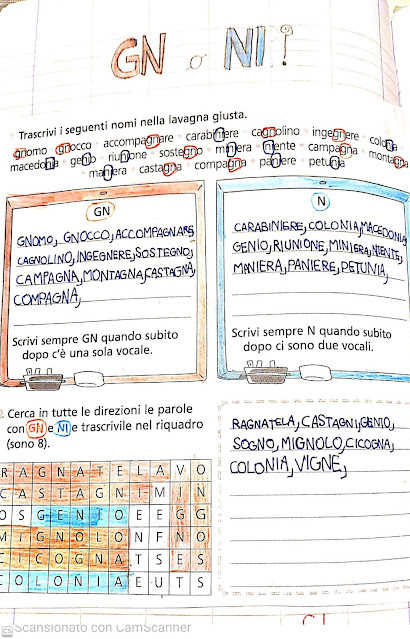 GN o NI?
Trascrivi i seguenti nomi nella lavagna giusta.
gnomo gnocco accompagnare carabiniere cagnolino ingegnere colonia
macedonia genio riunione sostegno miniera niente campagna montagna
maniera castagna compagna paniere petunia
GN
GNOMO, GNOCCO, ACCOMPAGNARE
CAGNOLINO, INGEGNERE, SOSTEGNO,
CAMPAGNA, MONTAGNA, CASTAGNA,
COMPAGNA,
Scrivi sempre GN quando subito
dopo c'è una sola vocale.
N
CARABINIERE, COLONIA, MACEDONIA
GENIO, RIUNIONE, MINIERA, NIENTE,
MANIERA, PANIERE, PETUNIA,
Scrivi sempre N quando subito
dopo ci sono due vocali.
Cerca in tutte le direzioni le parole
con GN e NI e trascrivile nel riquadro
(sono 8).
R A G N A T E L A V O
C A S T A G N I M I N
O S G E N I O E E G G
M I G N O L O N F N O
C I C O G N A T S E S
C O L O N I A E U T S
RAGNATELA, CASTAGNI, GENIO,
SOGNO, MIGNOLO, CICOGNA,
COLONIA, VIGNE,
CS Scansionato con CamScanner